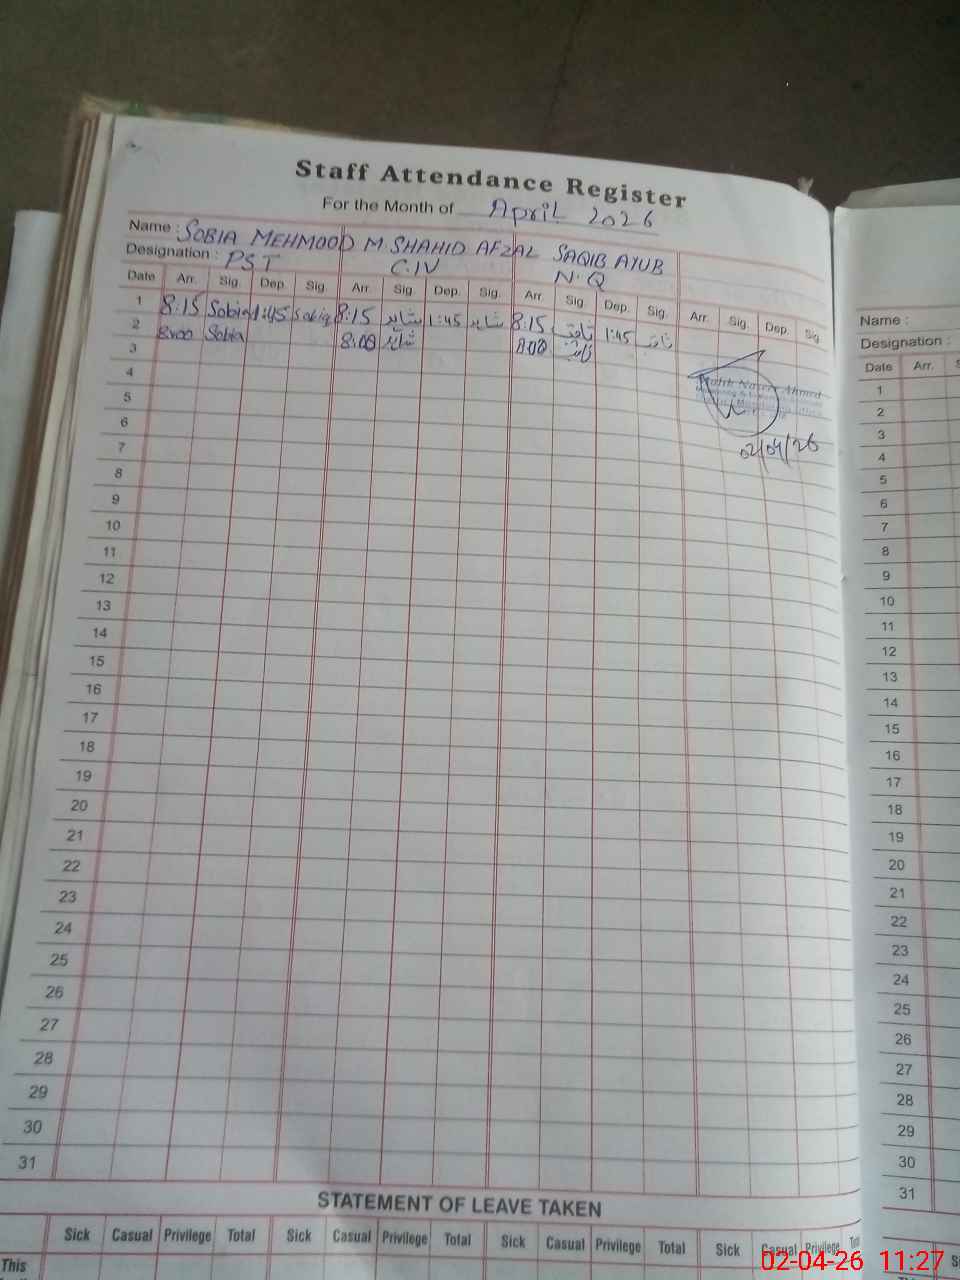 Staff Attendance Register
For the Month of April 2026
Name : SOBIA MEHMOOD M. SHAHID AFZAL SAQIB AYUB
Designation : PST C.IV N.Q
Date Arr. Sig. Dep. Sig. Arr. Sig. Dep. Sig. Arr. Sig. Dep. Sig. Arr. Sig. Dep. Sig.
1 8:15 Sobia 1:45 Sobia 8:15 شاہد 1:45 شاہد 8:15 ثاقب 1:45 ثاقب
2 8:00 Sobia 8:00 شاہد 8:00 ثاقب
3
4
5
6
7
8
9
10
11
12
13
14
15
16
17
18
19
20
21
22
23
24
25
26
27
28
29
30
31
Ahmed
02/04/26
STATEMENT OF LEAVE TAKEN
Sick Casual Privilege Total Sick Casual Privilege Total Sick Casual Privilege Total Sick Casual Privilege
This
Name :
Designation :
Date Arr.
1
2
3
4
5
6
7
8
9
10
11
12
13
14
15
16
17
18
19
20
21
22
23
24
25
26
27
28
29
30
31
02-04-26 11:27